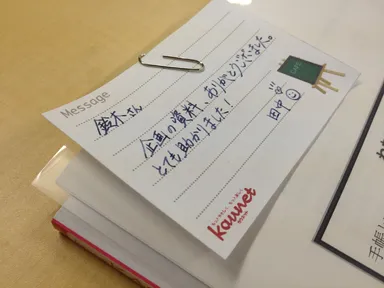 Message
鈴木さん
企画の資料、ありがとうございました。
とても助かりました！
田中
Kaunet
手帳